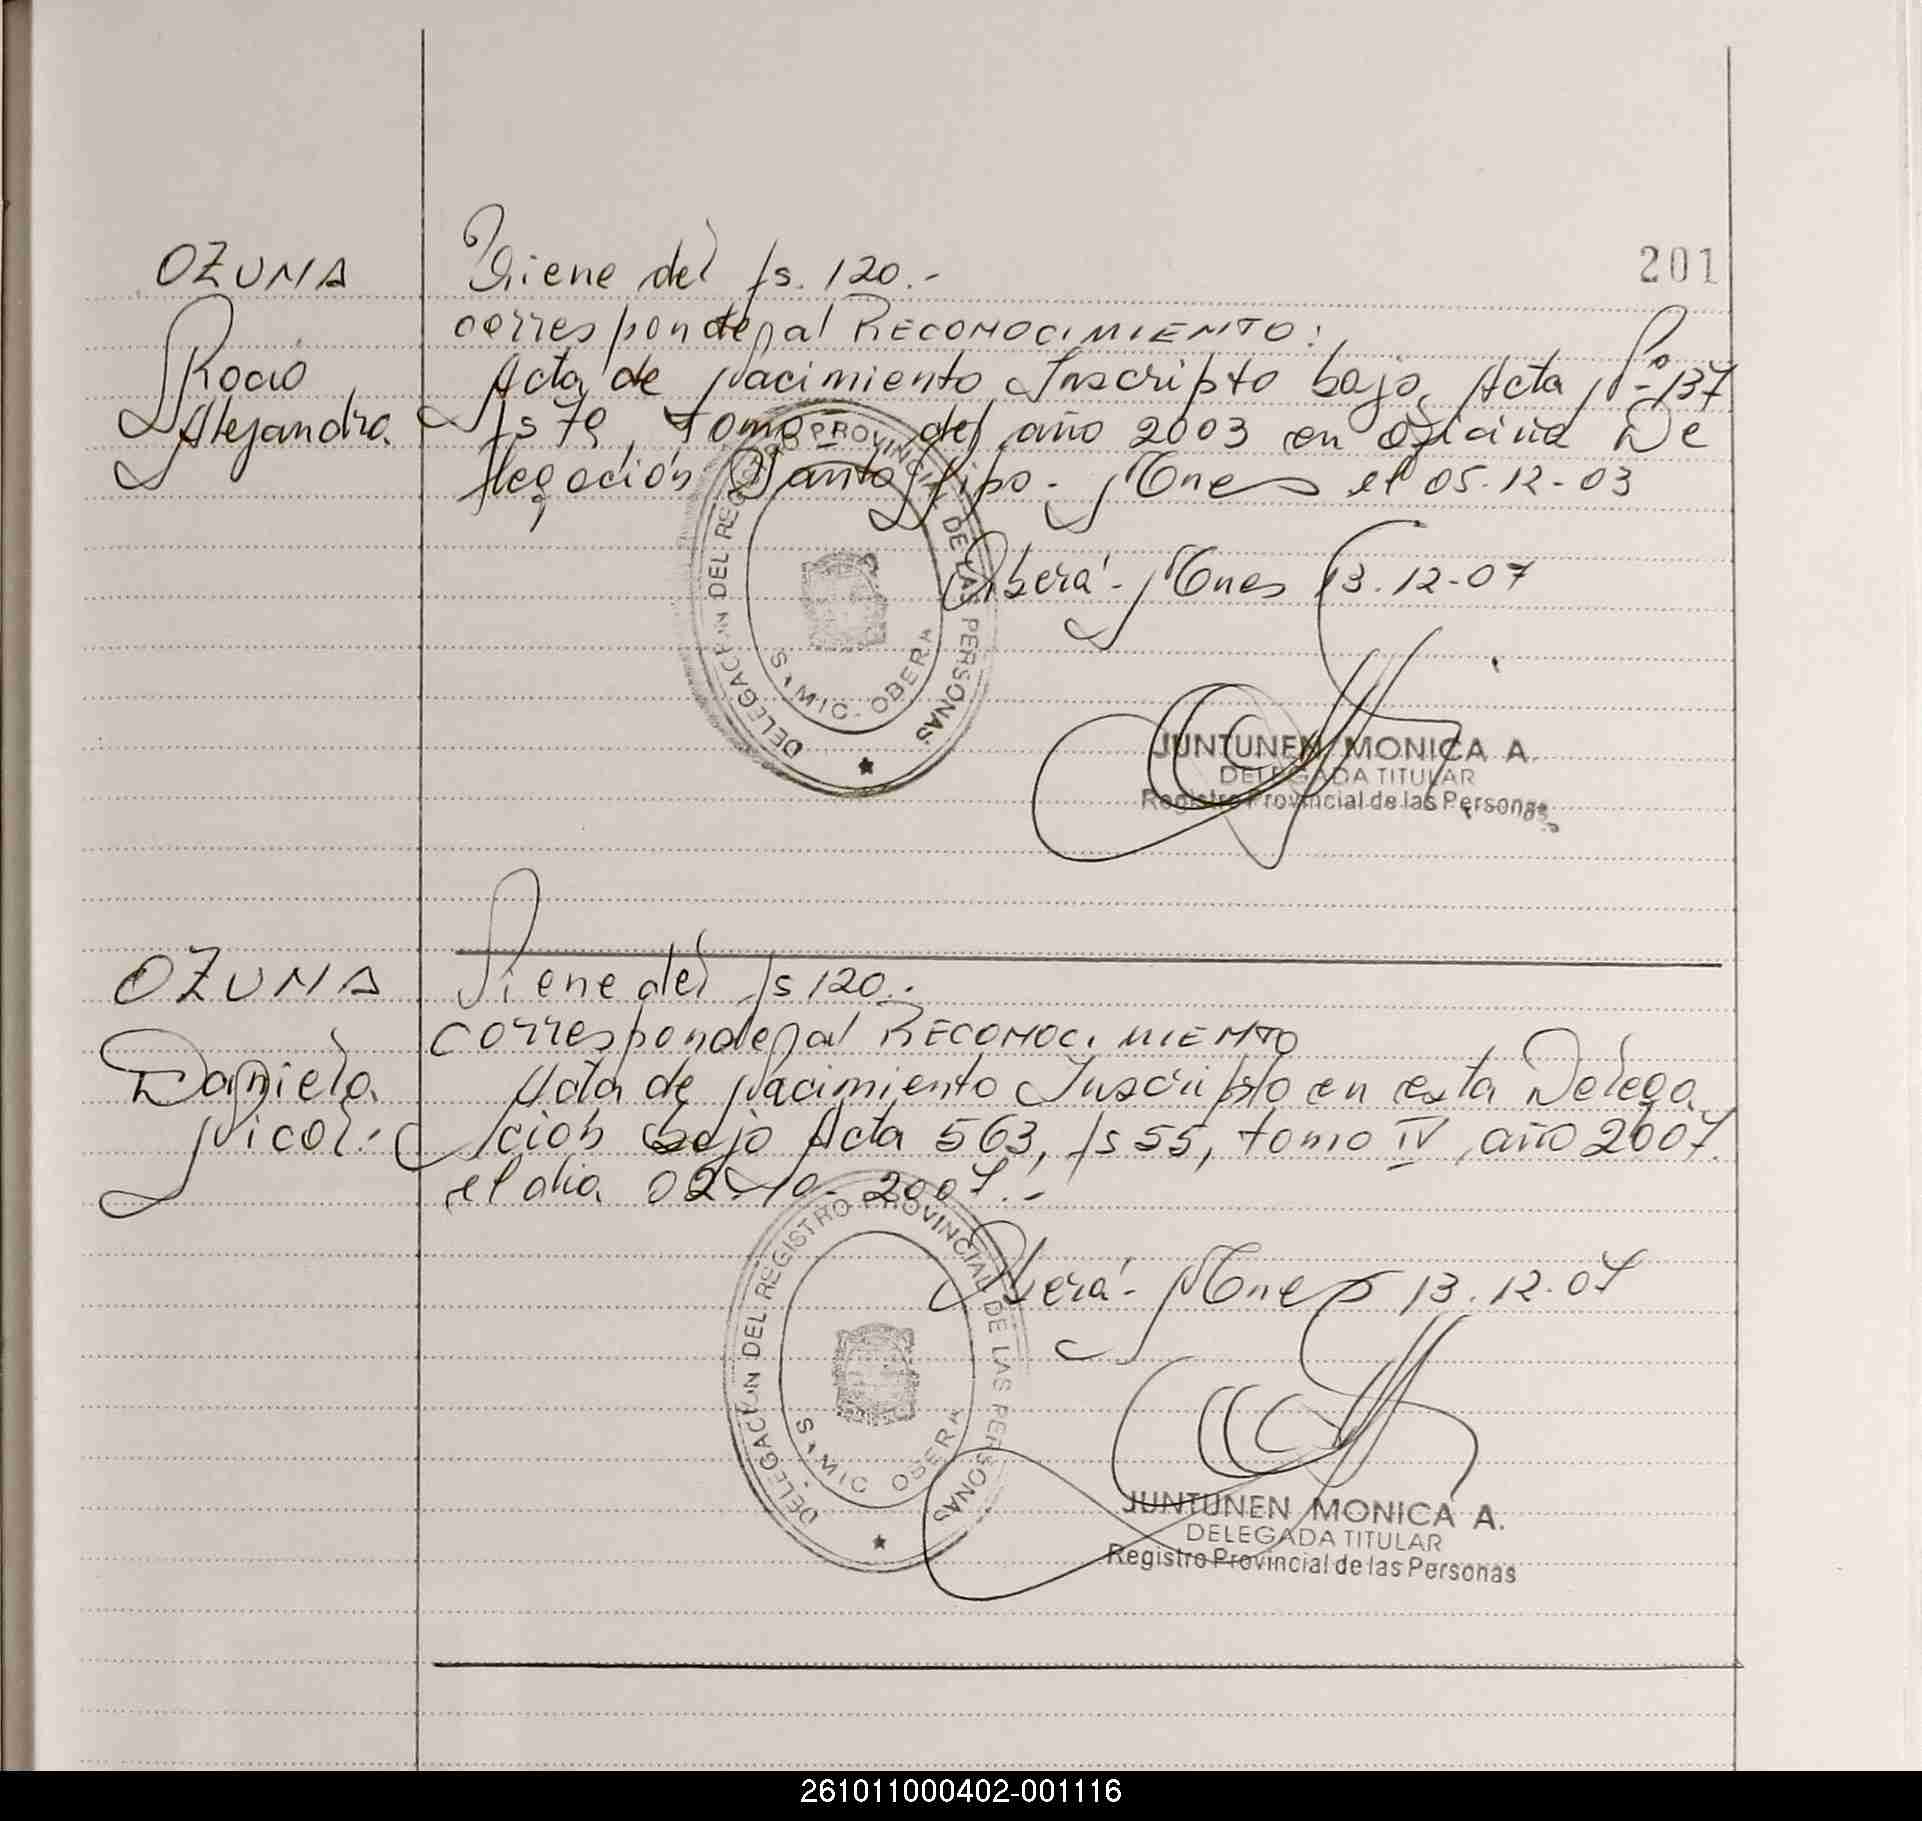 201
OZUNA
Rocio
Alejandra
Viene del fs. 120.-
corresponde, al RECONOCIMIENTO:
Acta de Nacimiento Inscripto bajo, Acta Nº 137
fs 79, Tomo - del año 2003 en oficina De
legación Santo Pipo - Mnes el 05.12-03
Oberá - Mnes 13.12-07
DELEGACION DEL REGISTRO PROVINCIAL DE LAS PERSONAS
OBERA
JUNTUNEN MONICA A.
DELEGADA TITULAR
Registro Provincial de las Personas
OZUNA
Daniela
Nicol:
Viene del fs 120.-
corresponde, al RECONOCIMIENTO
Acta de Nacimiento Inscripto en esta Delega
ción bajo Acta 563, fs 55, tomo IV, año 2007.
el dia 02-10-2007.-
Oberá - Mnes 13.12.07
DELEGACION DEL REGISTRO PROVINCIAL DE LAS PERSONAS
OBERA
JUNTUNEN MONICA A.
DELEGADA TITULAR
Registro Provincial de las Personas
261011000402-001116